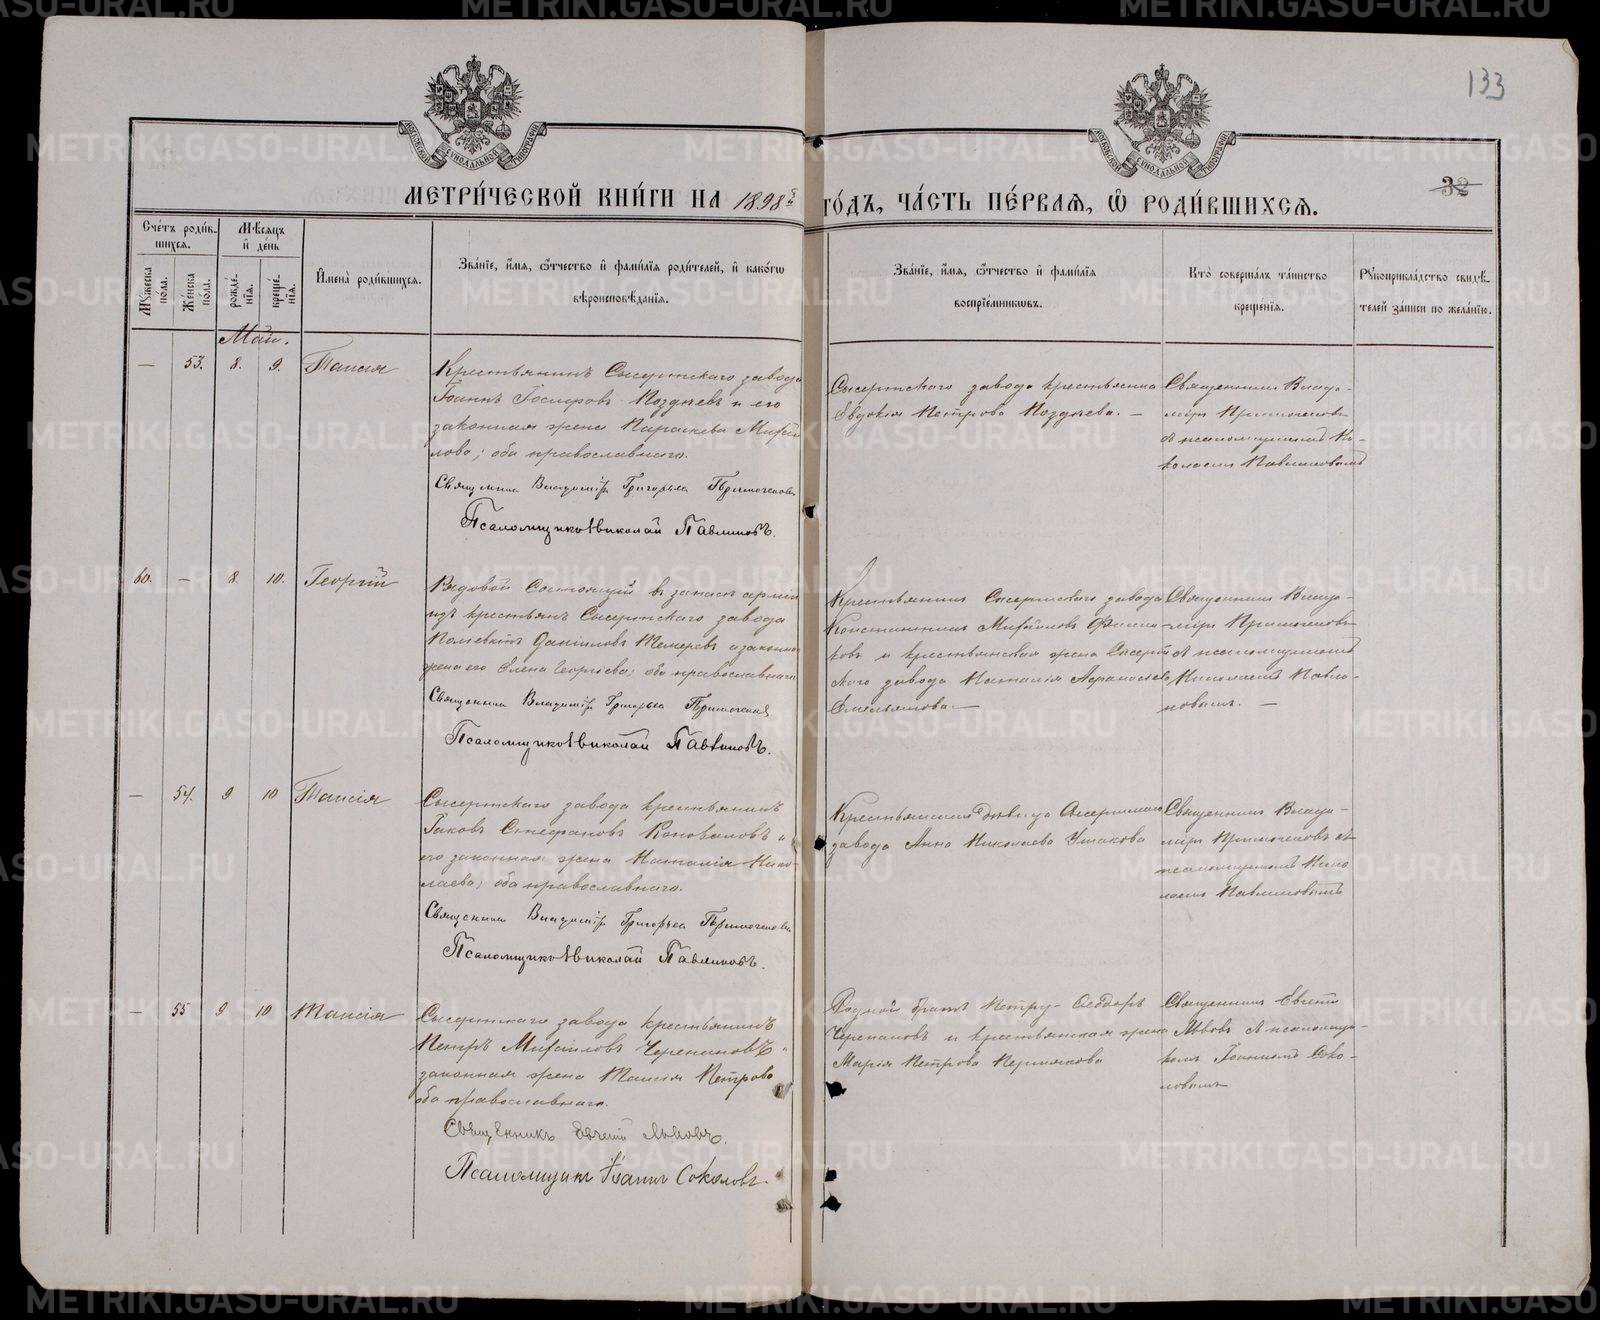 133
МОСКОВСКОЙ СѴНОДАЛЬНОЙ ТИПОГРАФІИ
МОСКОВСКОЙ СѴНОДАЛЬНОЙ ТИПОГРАФІИ
32
МЕТРИ́ЧЕСКОЙ КНИ́ГИ НА 1898й ГО́ДЪ, ЧА́СТЬ ПЕ́РВАЯ, Ѽ РОДИ́ВШИХСЯ.
Сче́тъ роди́в-
шихся.
Мꙋ́жеска по́ла.
Же́нска по́ла.
Мѣ́сяцъ
и҆ де́нь
рожде́-
нїя.
креще́-
нїя.
И҆мена̀ роди́вшихся.
Зва́нїе, и҆́мя, ѻ҆́тчество и҆ фами́лїя роди́телей, и҆ како́гѡ
вѣроисповѣ́данїя.
Зва́нїе, и҆́мя, ѻ҆́тчество и҆ фами́лїя
воспрїе́мниковъ.
Кто̀ соверша́лъ та́инство
креще́нїя.
Рꙋкоприкла́дство свидѣ́-
телей за́писи по жела́нїю.
Май.
— 53. 8. 9. Таисія
Крестьянинъ Сысертскаго завода
Іоаннъ Іосифовъ Позднѣевъ и его
законная жена Параскева Михай
лова; оба православнаго.
Священник Владимір Григорьев Примогенов
Псаломщикъ Николай Павлиновъ.
Сысертскаго завода крестьянка
Евдокія Петрова Позднѣева. —
Священник Влади-
мір Примогеновъ
съ псаломщикомъ Ни-
колаем Павлиновымъ
60. — 8. 10. Георгій
Рядовой состоящій въ запасѣ арміи
изъ крестьянъ Сысертскаго завода
Даніиловъ Темеревъ и законная
жена его Елена Георгіева; оба православнаго
Священник Владимір Григорьев Примогенов
Псаломщикъ Николай Павлиновъ.
Крестьянинъ Сысертскаго завода
Константинъ Михайловъ
ковъ и крестьянская жена Сысерт
скаго завода Наталія Афанасіева
Емельянова. —
Священник Влади-
мір Примогеновъ
съ псаломщикомъ
Николаемъ Павли-
новымъ. —
— 54. 9 10 Таисія
Сысертскаго завода крестьянинъ
Іаковъ Стефановъ Коноваловъ и
его законная жена Наталія Нико-
лаева; оба православнаго.
Священник Владимір Григорьев Примогенов
Псаломщикъ Николай Павлиновъ.
Крестьянская дѣвица Сысертскаго
завода Анна Николаева Ушакова
Священник Влади-
мір Примогеновъ съ
псаломщикомъ Нико
лаем Павлиновымъ
— 55 9 10 Таисія
Сысертскаго завода крестьянинъ
Петръ Михаиловъ Черепановъ и
законная жена Таисія Петрова
оба православнаго.
Священникъ Евгеній Львовъ.
Псаломщик Іоанн Соколовъ.
Родной братъ Петру — Ѳеодоръ
Черепановъ и крестьянская жена
Марія Петрова Пермякова
Священник Евгеній
Львовъ съ псаломщи-
комъ Іоанномъ Соко-
ловымъ
METRIKI.GASO-URAL.RU